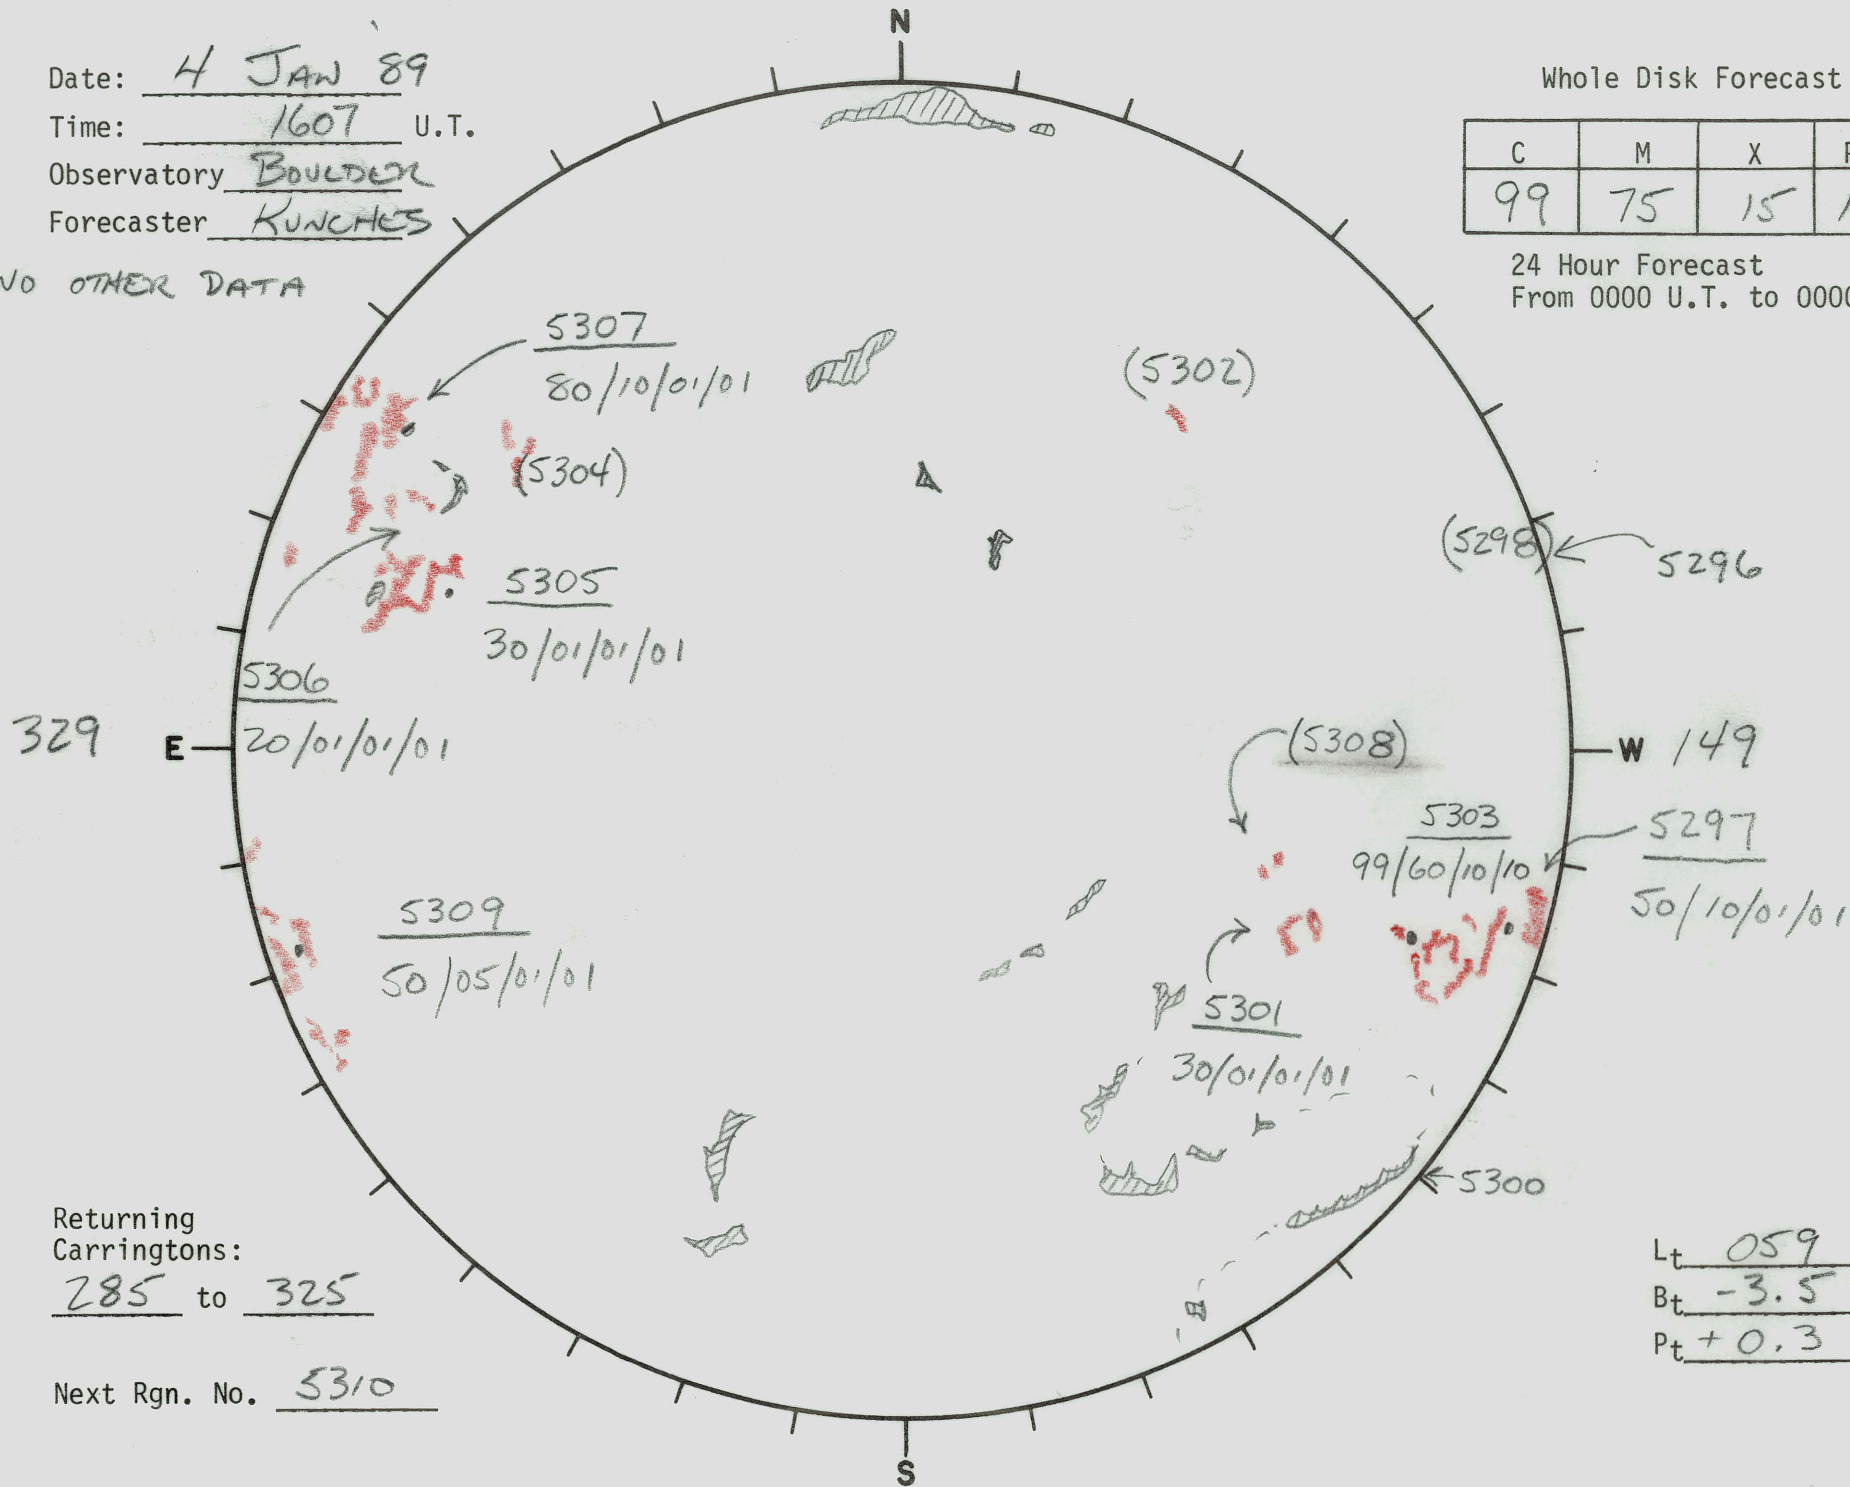 N
Date: 4 JAN 89
Time: 1607 U.T.
Observatory BOULDER
Forecaster KUNCHES
NO OTHER DATA
Whole Disk Forecast
C M X
99 75 15
24 Hour Forecast
From 0000 U.T. to 0000
5307
80/10/01/01
(5302)
(5304)
(5298)
5296
5305
30/01/01/01
5306
20/01/01/01
329 E
(5308)
W 149
5303
99/60/10/10
5297
50/10/01/01
5309
50/05/01/01
5301
30/01/01/01
5300
Returning
Carringtons:
285 to 325
Next Rgn. No. 5310
Lt 059
Bt -3.5
Pt +0.3
S